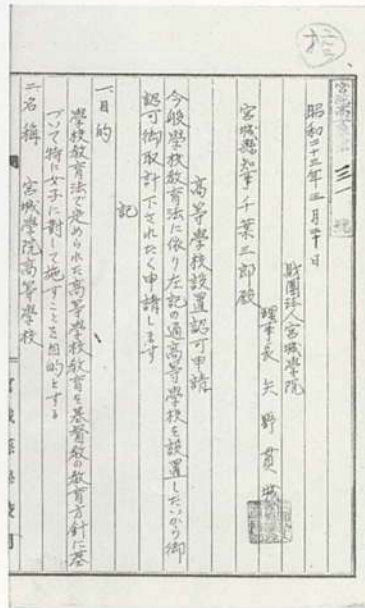 昭和二十三年三月二十日
財團法人宮城學院
理事長 矢野貫城
宮城縣知事千葉三郎殿
高等學校設置認可申請
今般學校教育法に依り左記の通高等學校を設置したいから御
認可御取計下されたく申請します
記
一、目的
學校教育法で定められた高等學校教育を基督教の教育方針に基
づいて特に女子に対して施すことを目的とする
二、名稱 宮城學院高等學校